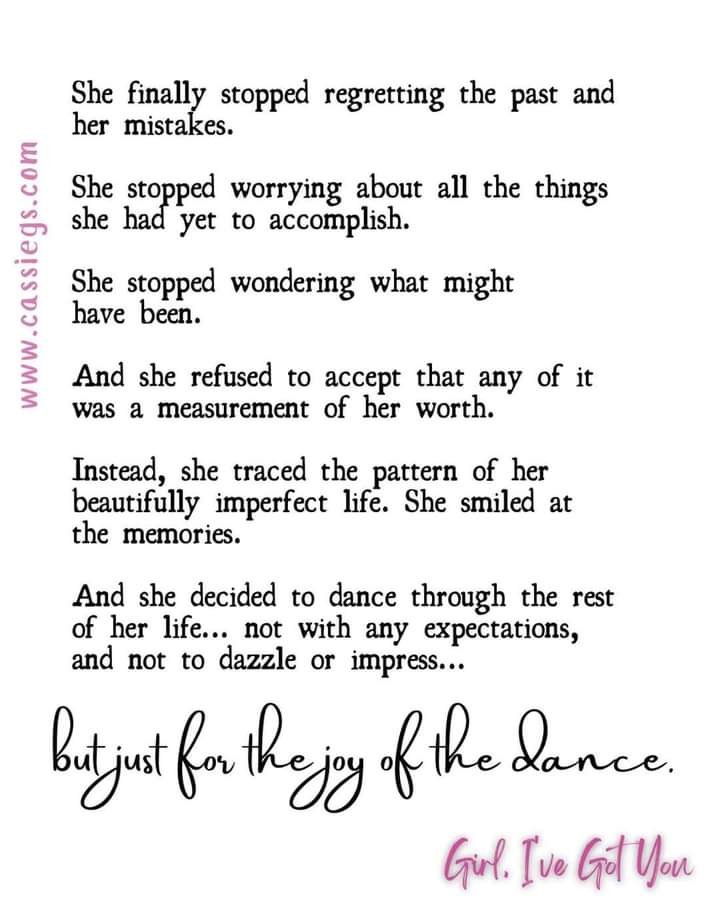 She finally stopped regretting the past and
her mistakes.
She stopped worrying about all the things
she had yet to accomplish.
She stopped wondering what might
have been.
And she refused to accept that any of it
was a measurement of her worth.
Instead, she traced the pattern of her
beautifully imperfect life. She smiled at
the memories.
And she decided to dance through the rest
of her life... not with any expectations,
and not to dazzle or impress...
but just for the joy of the dance.
Girl, I've Got You
www.cassiegs.com